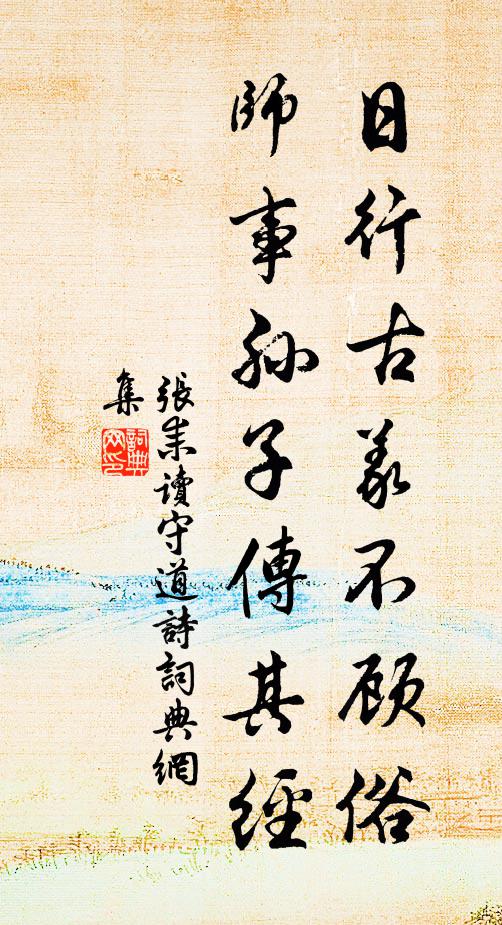 日行古義不顾俗
師事孙子傳其經
張耒讀守道詩詞典網
集
詞典
网印